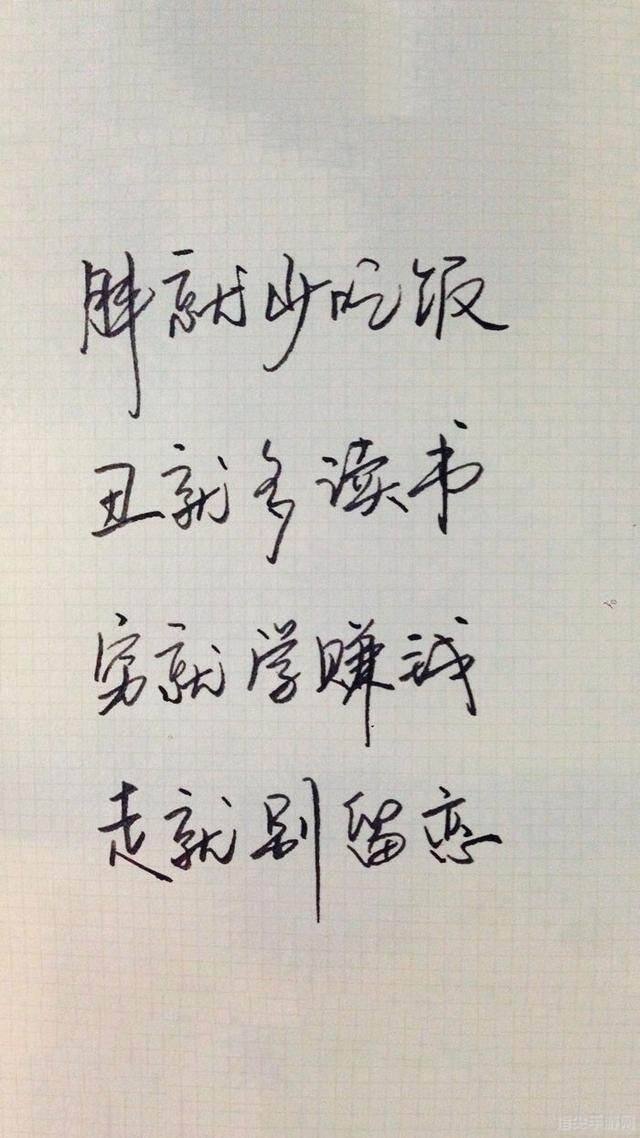 胖就少吃饭
丑就多读书
穷就学赚钱
走就别留恋
指尖手游网